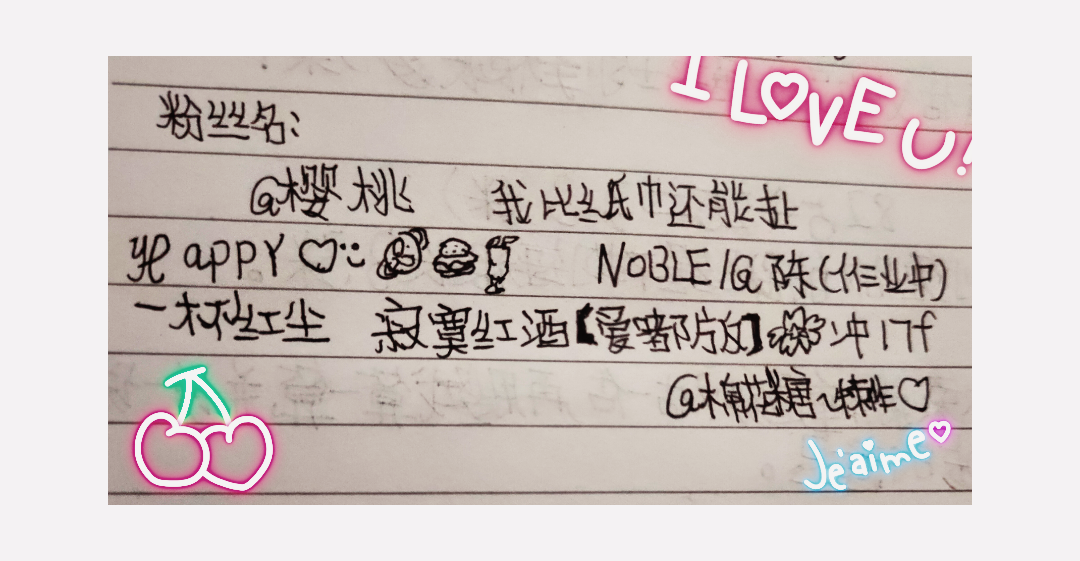 I LOVE U!
粉丝名:
@樱桃 我比丝纸巾还能扯
appy♡ NOBLE/@陈(作业中)
一杯红尘 寂寞红酒【爱嘟放】冲17f
@棉花糖~
Je'aime